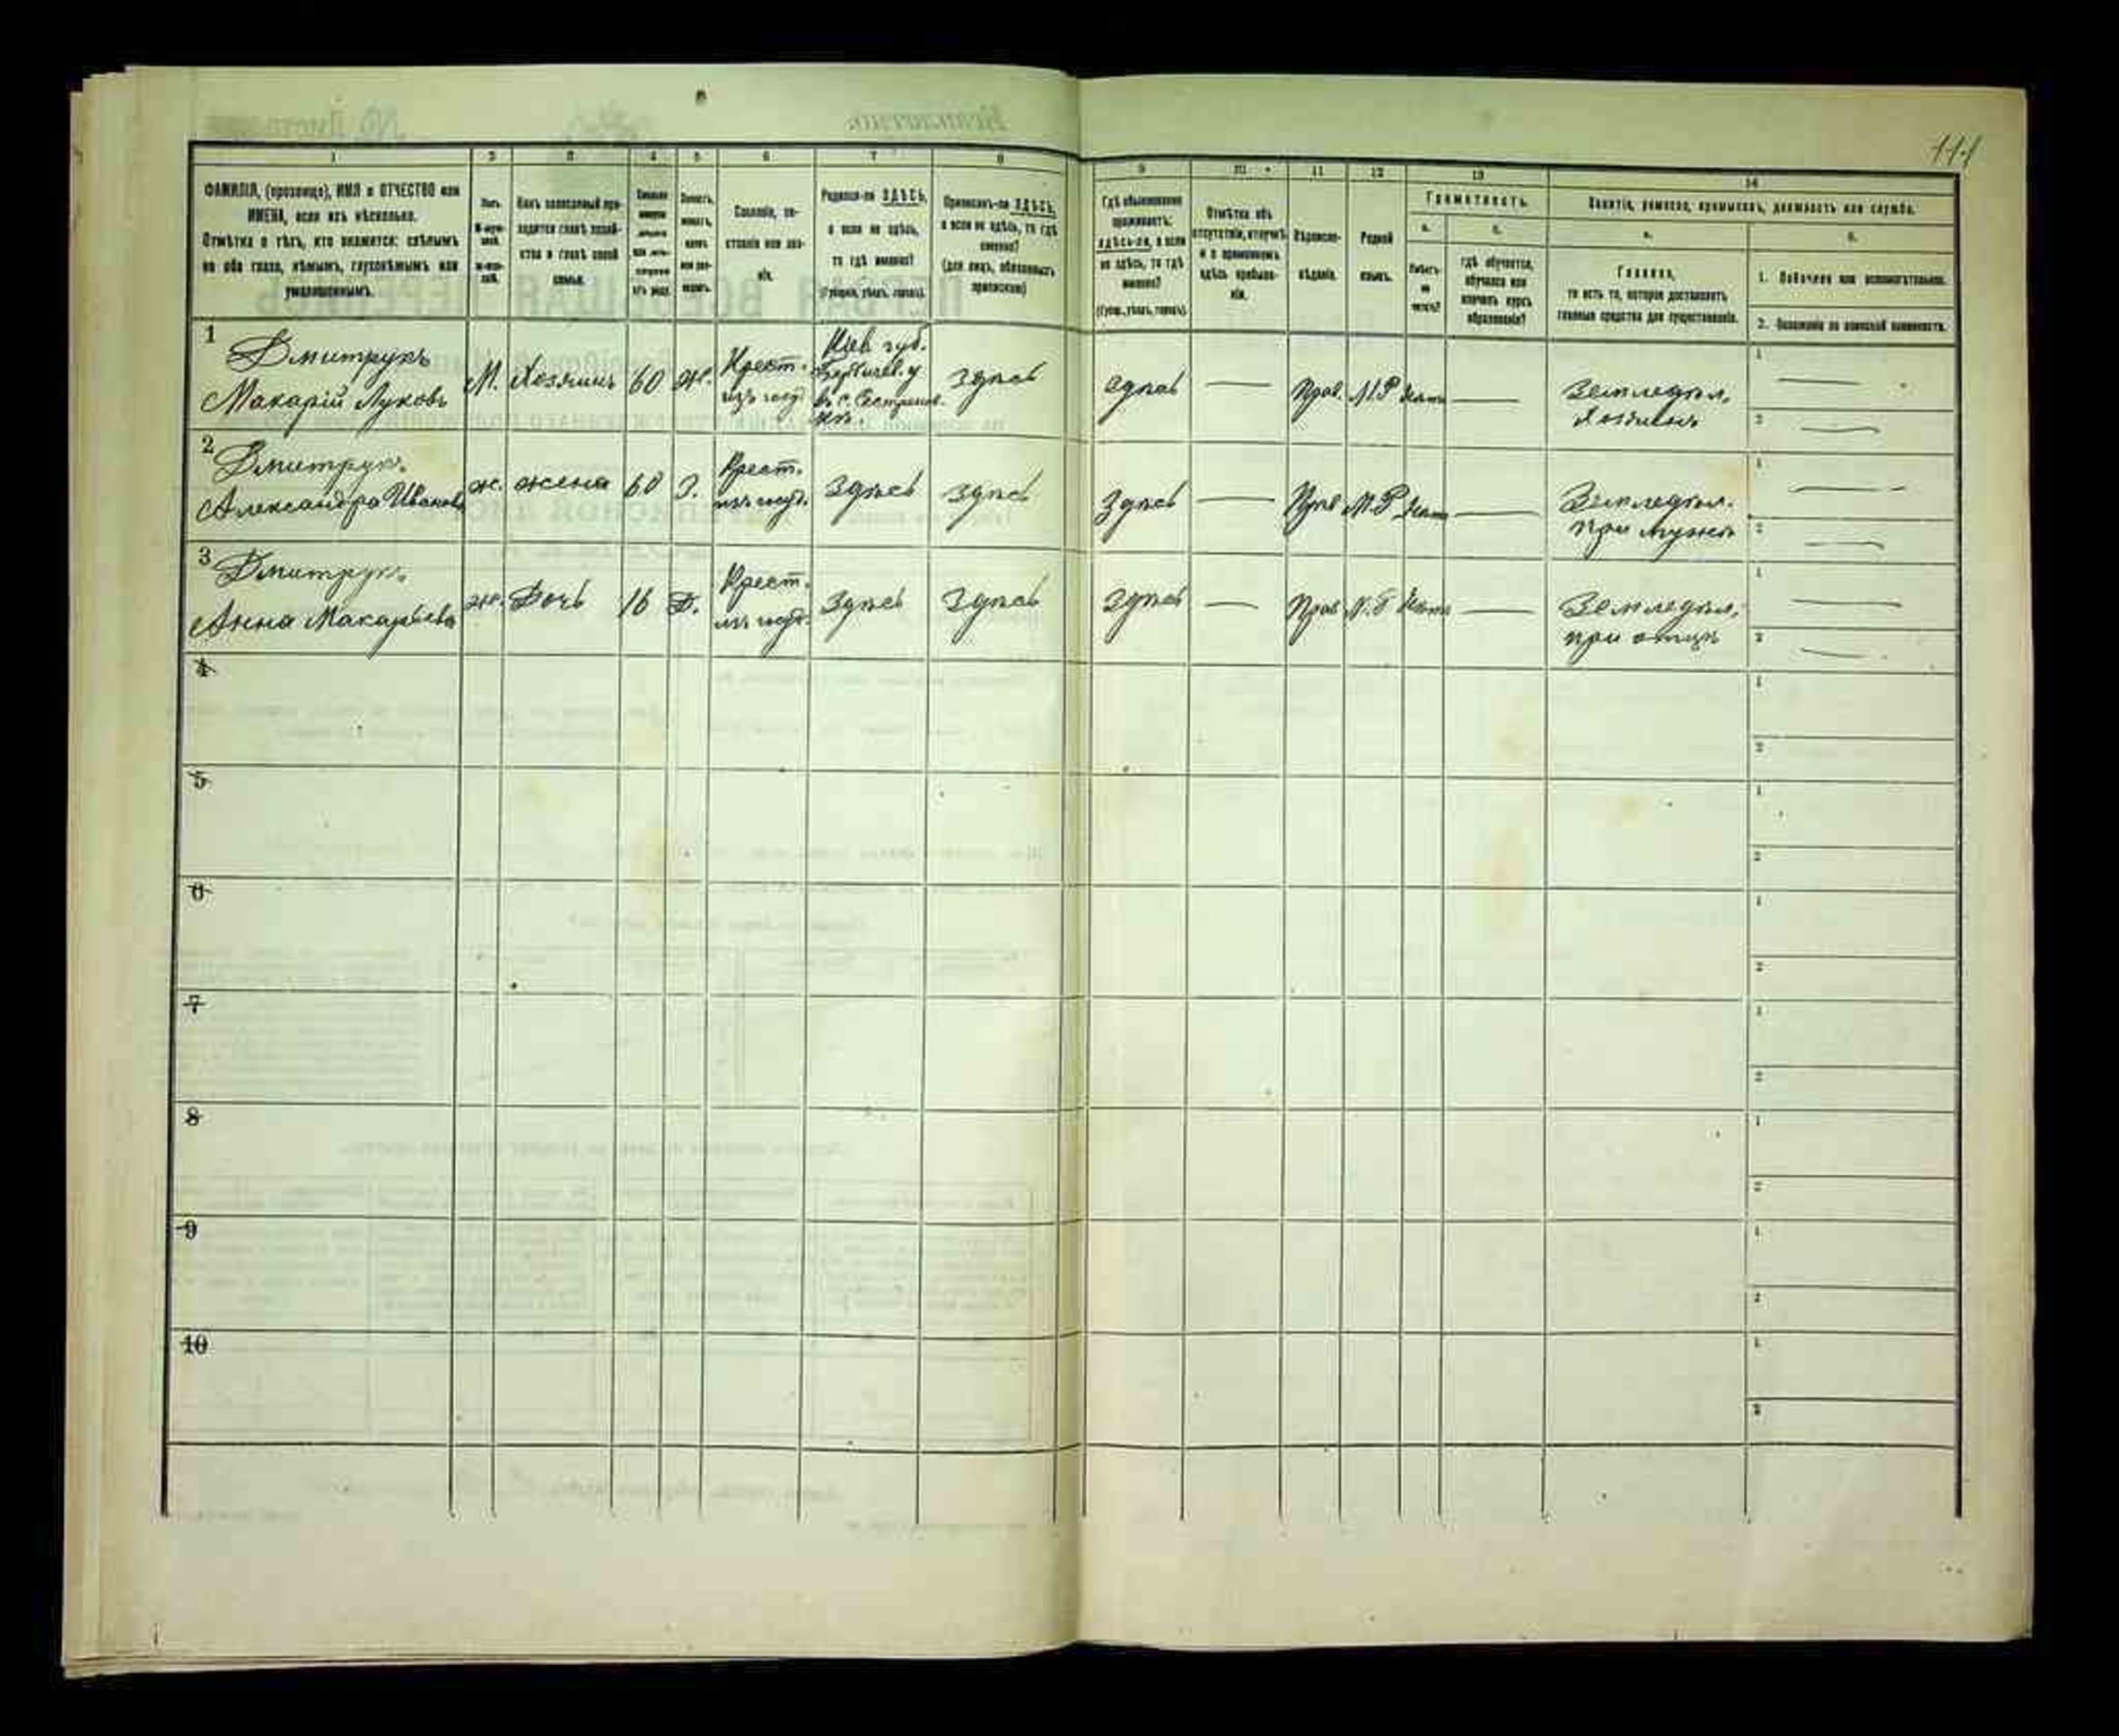 111
1 2 3 4 5 6 7 8
9 10 11 12 13 14
ФАМИЛІЯ, (прозвище), ИМЯ и ОТЧЕСТВО или
ИМЕНА, если ихъ нѣсколько.
Отмѣтка о тѣхъ, кто окажется: слѣпымъ
на оба глаза, нѣмымъ, глухонѣмымъ или
умалишеннымъ.
Полъ.
М-муж-
ской.
Ж-жен-
скій.
Какъ записанный при-
ходится главѣ хозяй-
ства и главѣ своей
семьи.
Сословіе, со-
стояніе или зва-
ніе.
Родился-ли ЗДѢСЬ,
а если не здѣсь,
то гдѣ именно?
(Губернія, уѣздъ, городъ).
Приписанъ-ли ЗДѢСЬ,
а если не здѣсь, то гдѣ
именно?
(для лицъ, обязанныхъ
припискою)
Гдѣ обыкновенно
проживаетъ:
здѣсь-ли, а если
не здѣсь, то гдѣ
именно?
(Губер., уѣздъ, городъ).
Отмѣтка объ
отсутствіи, отлучкѣ
и о временномъ
здѣсь пребыва-
ніи.
Вѣроиспо-
вѣданіе.
Родной
языкъ.
Грамотность.
а.
Умѣетъ-
ли
читать?
б.
гдѣ обучается,
обучался или
кончилъ курсъ
образованія?
Занятіе, ремесло, промыселъ, должность или служба.
а.
Главное,
то есть то, которое доставляетъ
главныя средства для существованія.
б.
1. Побочное или вспомогательное.
2. Положеніе по воинской повинности.
1
Дмитрукъ
Макарій Луковъ
М.
Хозяинъ
60
Ж.
Крест.
изъ госуд.
Кіев. губ.
Бердичев. у
въ с.
здѣсь
здѣсь
Прав.
М.Р
Земледѣл.
Хозяинъ
1
2
2
Дмитрук.
Александра Иванова
ж.
жена
60
З.
Крест.
изъ госуд.
здѣсь
здѣсь
здѣсь
Прав
М.Р
Земледѣл.
при мужѣ
1
2
3
Дмитрук.
Анна Макарьева
ж.
Дочь
16
Д.
Крест.
изъ госуд.
здѣсь
здѣсь
здѣсь
Прав
Земледѣл.
при отцѣ
1
2
4
1
2
5
1
2
6
1
2
7
1
2
8
1
2
9
1
2
10
1
2